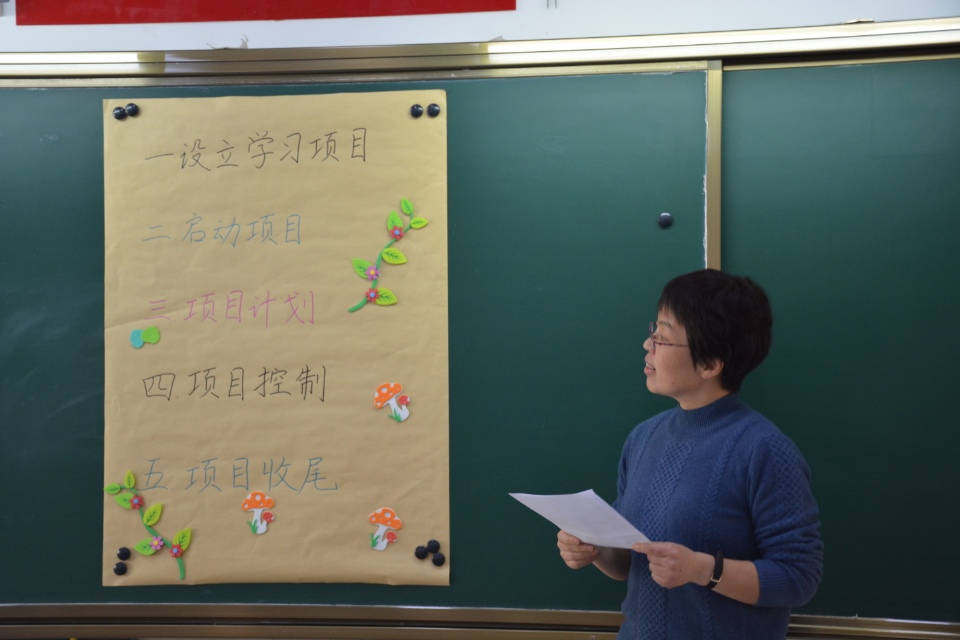 一 设立学习项目
二 启动项目
三 项目计划
四 项目控制
五 项目收尾